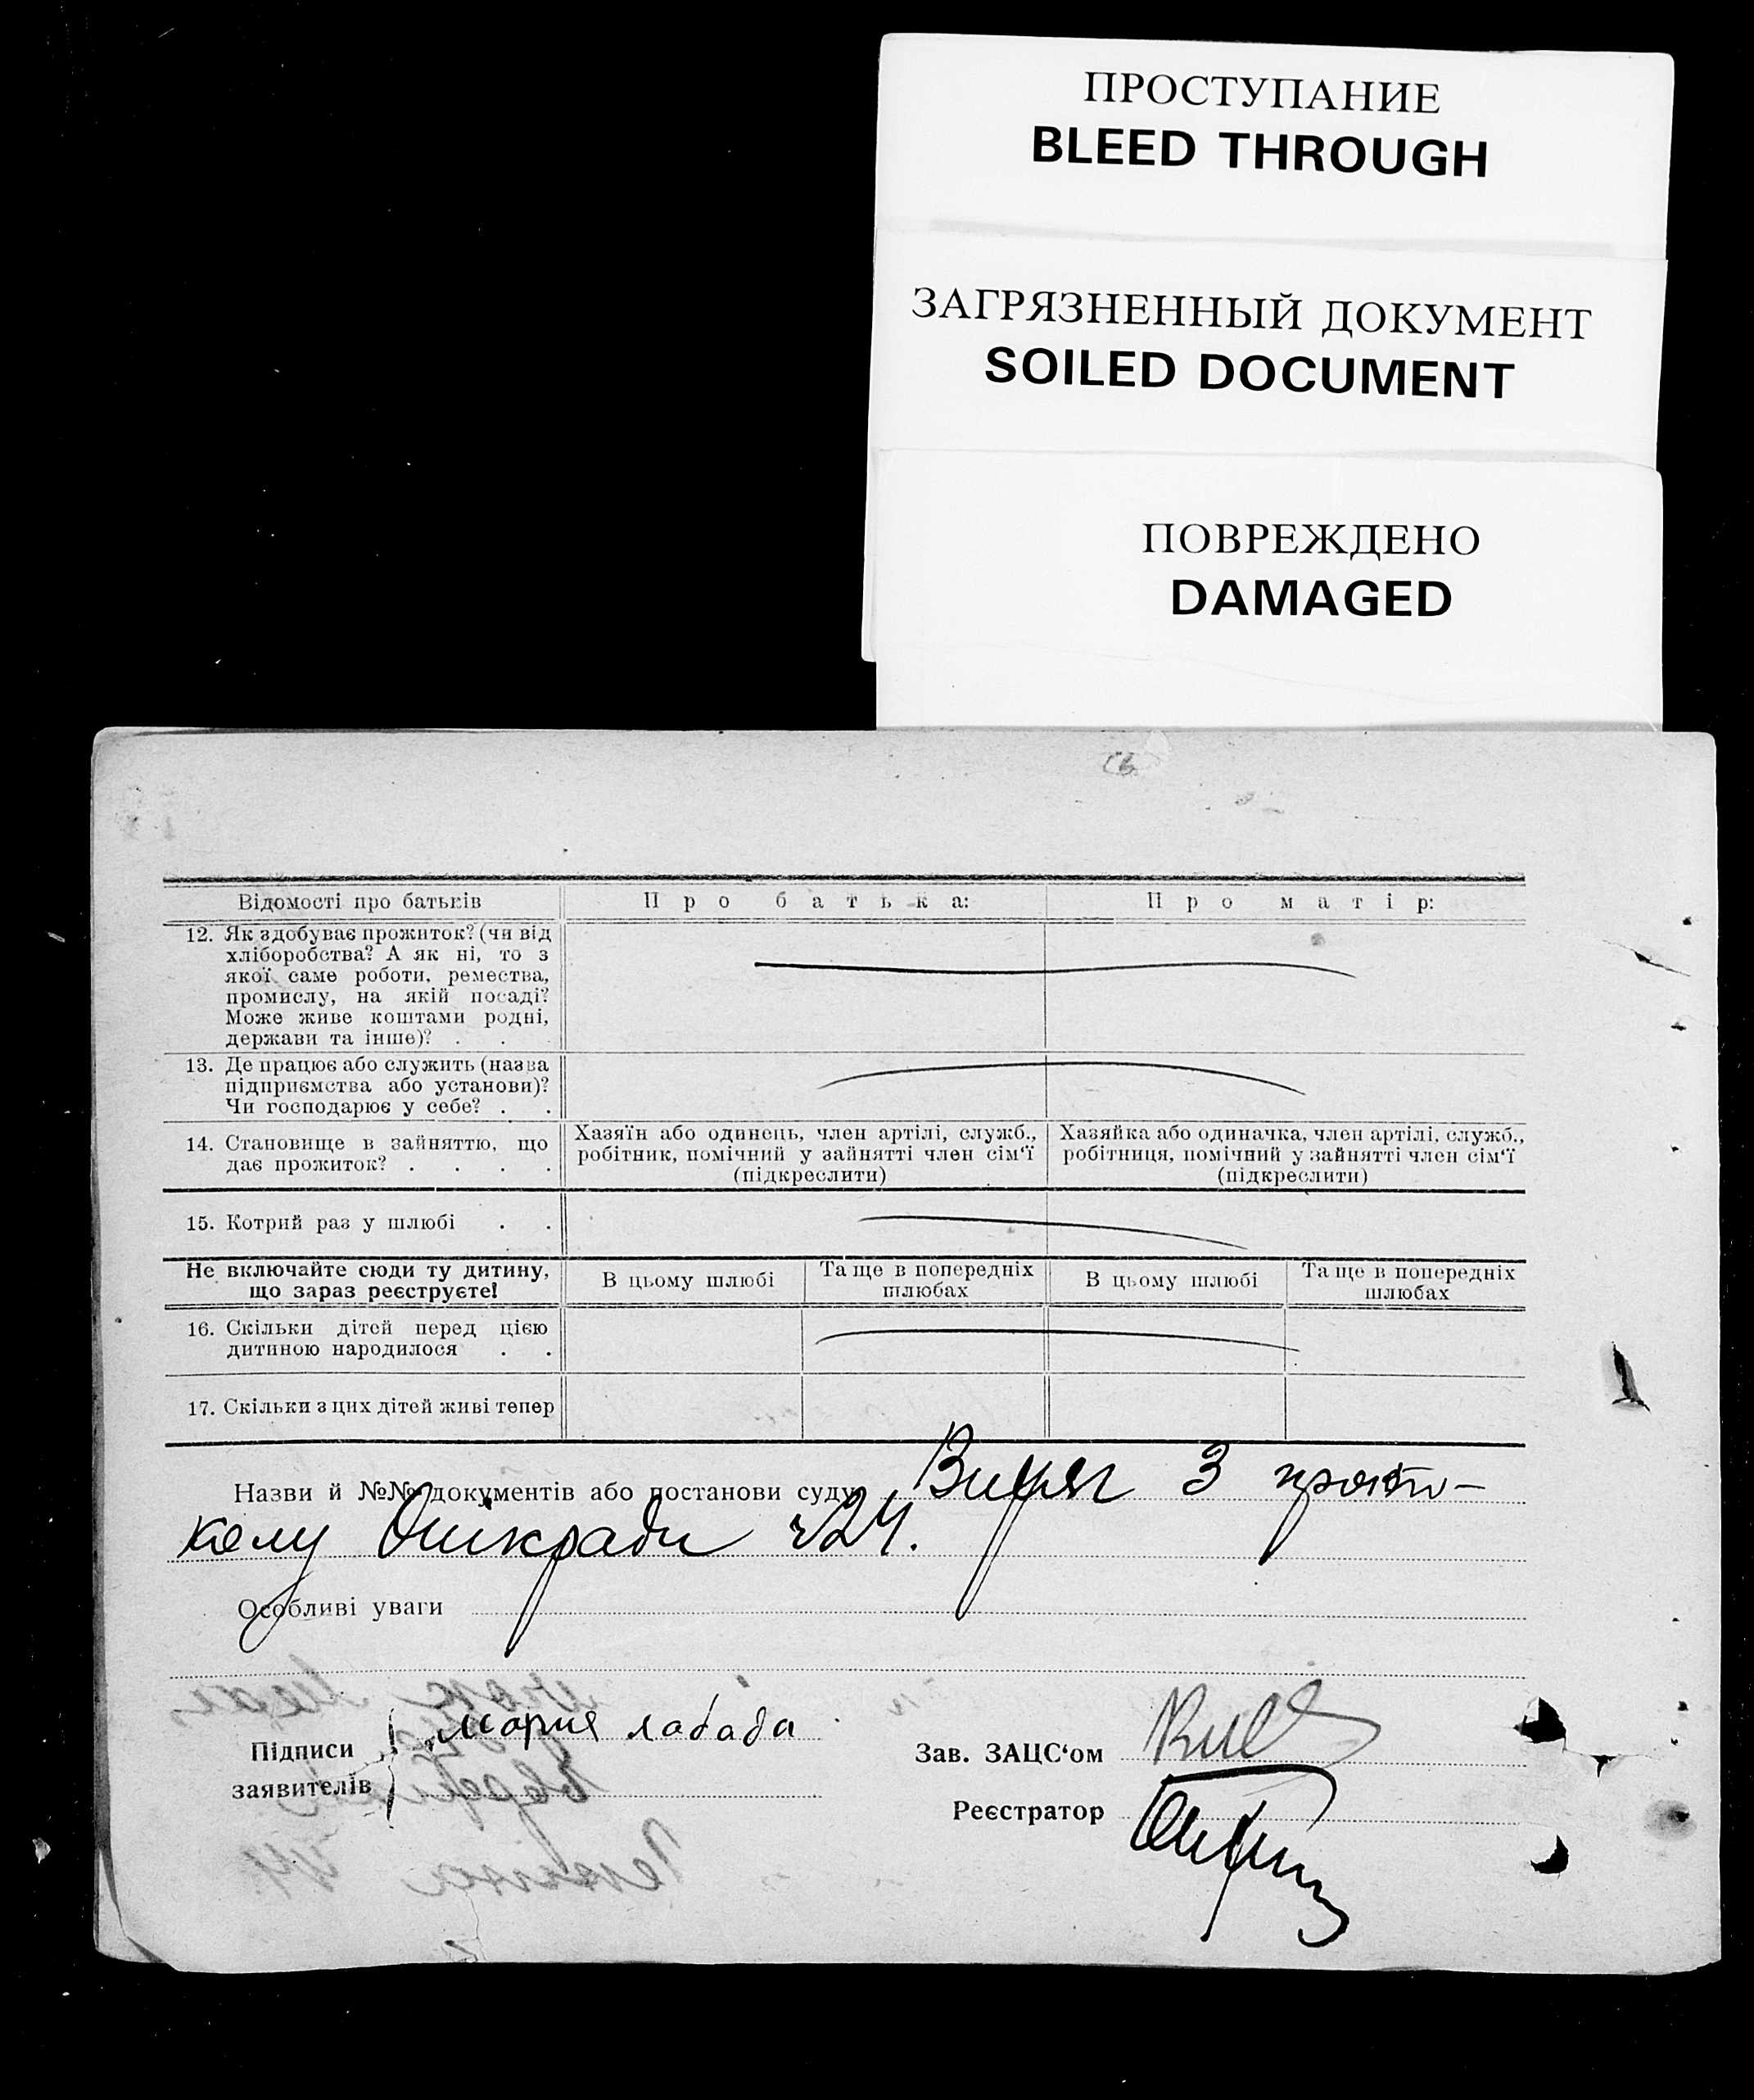 ПРОСТУПАНИЕ
BLEED THROUGH
ЗАГРЯЗНЕННЫЙ ДОКУМЕНТ
SOILED DOCUMENT
ПОВРЕЖДЕНО
DAMAGED
Відомості про батьків
Про батька:
Про матір:
12. Як здобуває прожиток? (чи від
хліборобства? А як ні, то з
якої саме роботи, ремества,
промислу, на якій посаді?
Може живе коштами родні,
держави та інше)? . .
13. Де працює або служить (назва
підприємства або установи)?
Чи господарює у себе? . .
14. Становище в зайняттю, що
дає прожиток? . . . .
Хазяїн або одинець, член артілі, служб.,
робітник, помічний у зайнятті член сім'ї
(підкреслити)
Хазяйка або одиначка, член артілі, служб.,
робітниця, помічний у зайнятті член сім'ї
(підкреслити)
15. Котрий раз у шлюбі . .
Не включайте сюди ту дитину,
що зараз реєструєте!
В цьому шлюбі
Та ще в попередніх
шлюбах
В цьому шлюбі
Та ще в попередніх
шлюбах
16. Скільки дітей перед цією
дитиною народилося . .
17. Скільки з цих дітей живі тепер
Назви й №№ документів або постанови суду Витяг з прото-
колу
Особливі уваги
Підписи
заявителів
Мория лабада
Зав. ЗАЦС'ом
Реєстратор